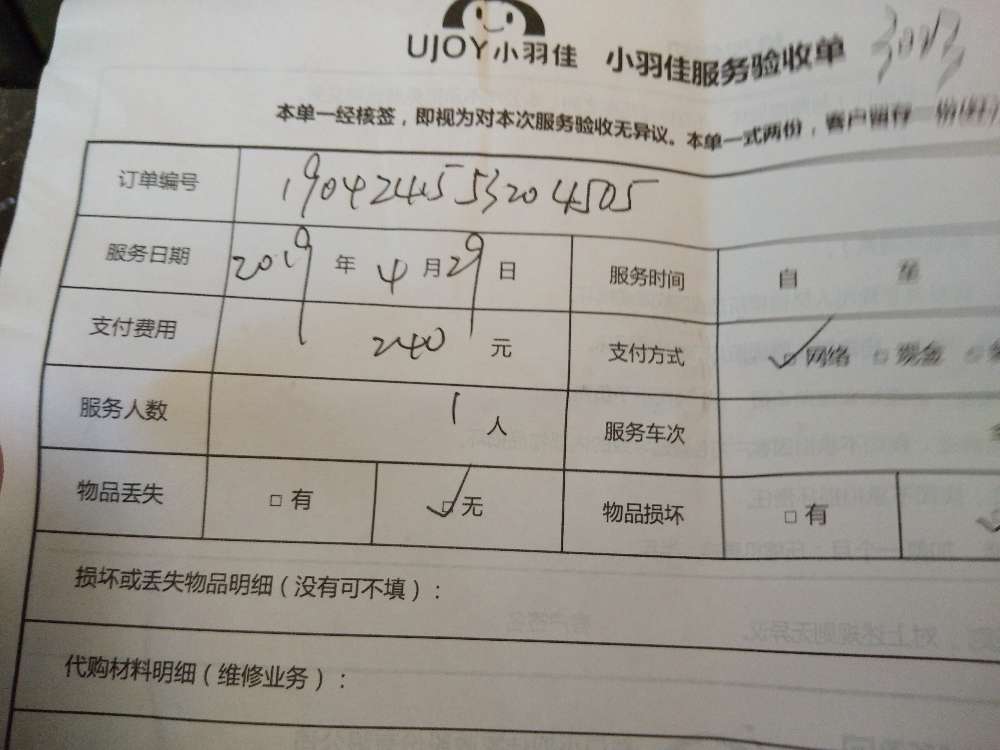 UJOY小羽佳 小羽佳服务验收单
本单一经核签，即视为对本次服务验收无异议。本单一式两份，客户留存一份
订单编号 1904244553204505
服务日期 2019年4月29日 服务时间 自 至
支付费用 240元 支付方式 ✓□网络 □现金
服务人数 1人 服务车次
物品丢失 □有 ✓□无 物品损坏 □有
损坏或丢失物品明细（没有可不填）：
代购材料明细（维修业务）：